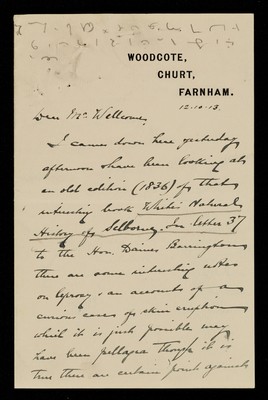 WOODCOTE,
CHURT,
FARNHAM.
12.10.13.
Dear Mr. Wellcome,
I came down here yesterday
afternoon & have been looking at
an old edition (1836) of that
interesting book White's Natural
History of Selborne. In letter 37
to the Hon. Daines Barrington
there are some interesting notes
on leprosy & an account of a
curious case of skin eruption
which it is just possible may
have been pellagra though it is
true there are certain points against